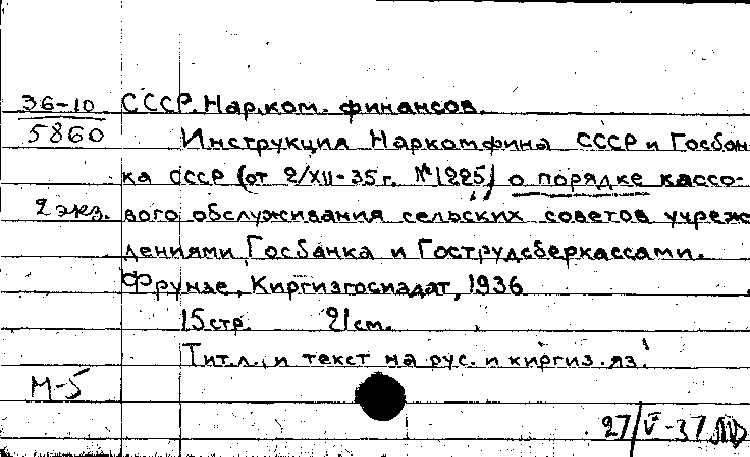 36-10 СССР. Нар.ком. финансов.
5860 Инструкция Наркомфина СССР и Госбан
ка СССР (от 2/XII-35 г. №1225) о порядке кассо-
2 экз. вого обслуживания сельских советов учреж
дениями Госбанка и Гострудсберкассами.
Фрунзе, Киргизгосиздат, 1936
15 стр. 21 см.
Тит.л. и текст на рус. и киргиз. яз.
М-5
27/V-37